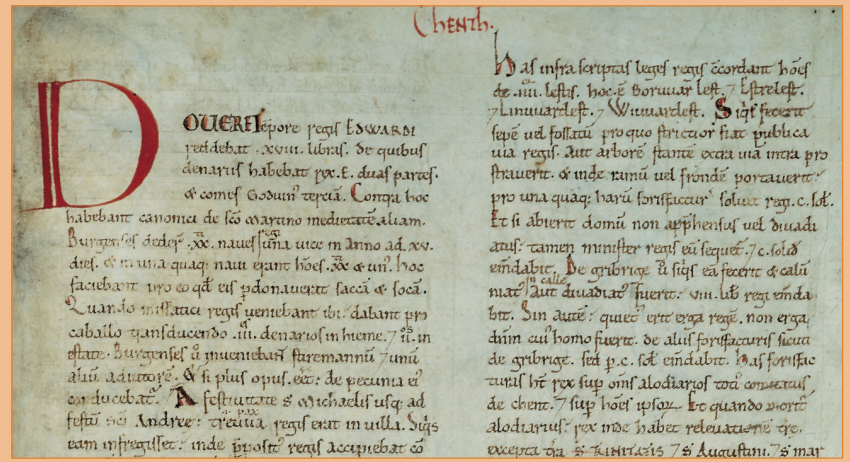 Chenth.
DOVERE Tēpore regis EDWARDI
reddebat .xviii. libras. de quibus
denariis habebat rex .E. duas partes.
& comes Goduin' terciā. Contra hoc
habebant canonici de sc̄o Martino medietatē aliam.
Burgenses dedeř .xx. naues regi una uice in anno ad .xv.
dies. & in una quaq; naui erant hōes .xx. & un'. hoc
faciebant pro eo qđ eis pdonauerat saccā & socā.
Quando missatici regis ueniebant ibi: dabant pro
caballo transducendo .iii. denarios in hieme. ⁊ .ii. in
estate. Burgenses ū inueniebant stiremannū ⁊ unū
aliū adiutorē. & si plus opus eēt: de pecunia ei'
conducebat'. A festiuitate S Michaelis usq; ad
festū sc̄i Andree: treuua regis erat in uilla. Siq̓s
eam infregisset: inde p̄posit' regis accipiebat cō
has infra scriptas leges regis c̄cordant hōes
de .iiii. lestis. hoc .ē. Boruuar lest. ⁊ Estrelest.
⁊ Linuuarlest. ⁊ Wiuuarlest. Siq̓s fecerit
sepē uel fossatū pro quo strictior fiat publica
uia regis. Aut arborē stantē extra uia intra pro
strauerit. & inde ramū uel frondē portauerit:
pro una quaq; harū forisfactur' soluet regi .c. sol'.
Et si abierit domū non app̄hensus uel diuadi
atus: tamen minister regis eū sequet'. ⁊ .c. solid
em̄dabit. De gribrige ū siq̓s eā fecerit & calū
niat' aut diuadiat' sin calle fuerit: .viii. lib' regi em̄da
bit. Sin autē: quiet' erit erga regē. non erga
dn̄m cui' homo fuerit. de aliis forisfacturis sicuti
de gribrige. sed p .c. sol' em̄dabit. has forisfac
turas ht rex sup om̄s alodiarios toci' comitatus
de chent. ⁊ sup hōes ipsoꝝ. Et quando morit'
alodiarius: rex inde habet releuationē tre.
excepta tra S TRINITATIS ⁊ S Augustini. ⁊ S mar